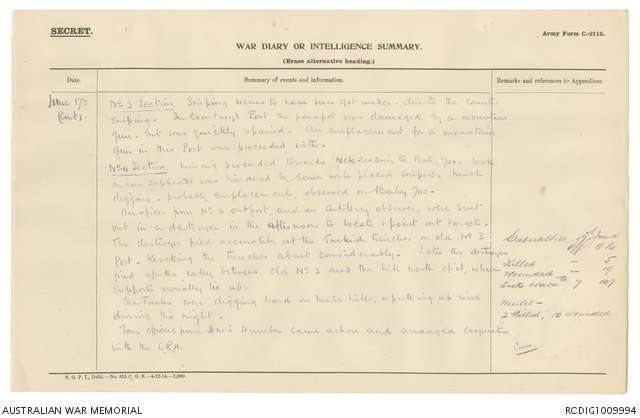 SECRET.
Army Form C.-2118.
WAR DIARY OR INTELLIGENCE SUMMARY.
(Erase alternative heading.)
Date.
Summary of events and information.
Remarks and references to Appendices.
June 17th
(Cont).
No 3 Section Sniping seems to have been got under - due to the counter
sniping. In Courtney's Post the parapet was damaged by a mountain
gun - but was quickly repaired. An emplacement for a mountain
gun in this Post was proceeded with.
No 4 Section, mining proceeded towards Nek leading to Baby 700. Work
on new sapheads was hindered by some well placed snipers. Much
digging - probably emplacement, observed on Baby 700.
An officer from No 3 outpost and an Artillery observer, were sent
out in a destroyer in the afternoon to locate & point out targets.
The destroyer fired accurately at the Turkish trenches on old No 3
Post - knocking the trenches about considerably. Later the destroyer
fired up the valley between old No 3 and the hill north of it, where
supports usually lie up.
The Turks were digging hard on these hills, & putting up wire
during the night.
Four officers from H.M.S. Humber came ashore and arranged cooperation
with the CRA.
Casualties 17th June
Off O.R.
Killed - 5
Wounded - 19
Sick evac 7 107
Mules -
2 killed, 10 wounded
S. G. P. I., Delhi.-No. 815 C. G. B.-4-12-14-1,000.
AUSTRALIAN WAR MEMORIAL
RCDIG1009994